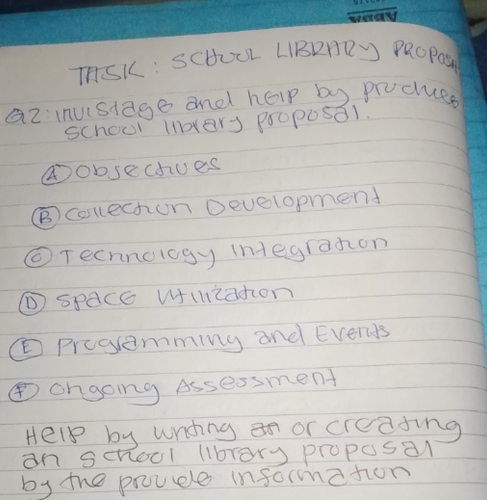 TASK: SCHOOL LIBRARY PROPOSA
Q2: invistage and help by produces
school library proposal.
Ⓐ Objectives
Ⓑ Collection Development
Ⓒ Technology integration
Ⓓ Space Utilization
Ⓔ Programming and Events
Ⓕ Ongoing Assessment
Help by writing or creating
an school library proposal
by the provide information